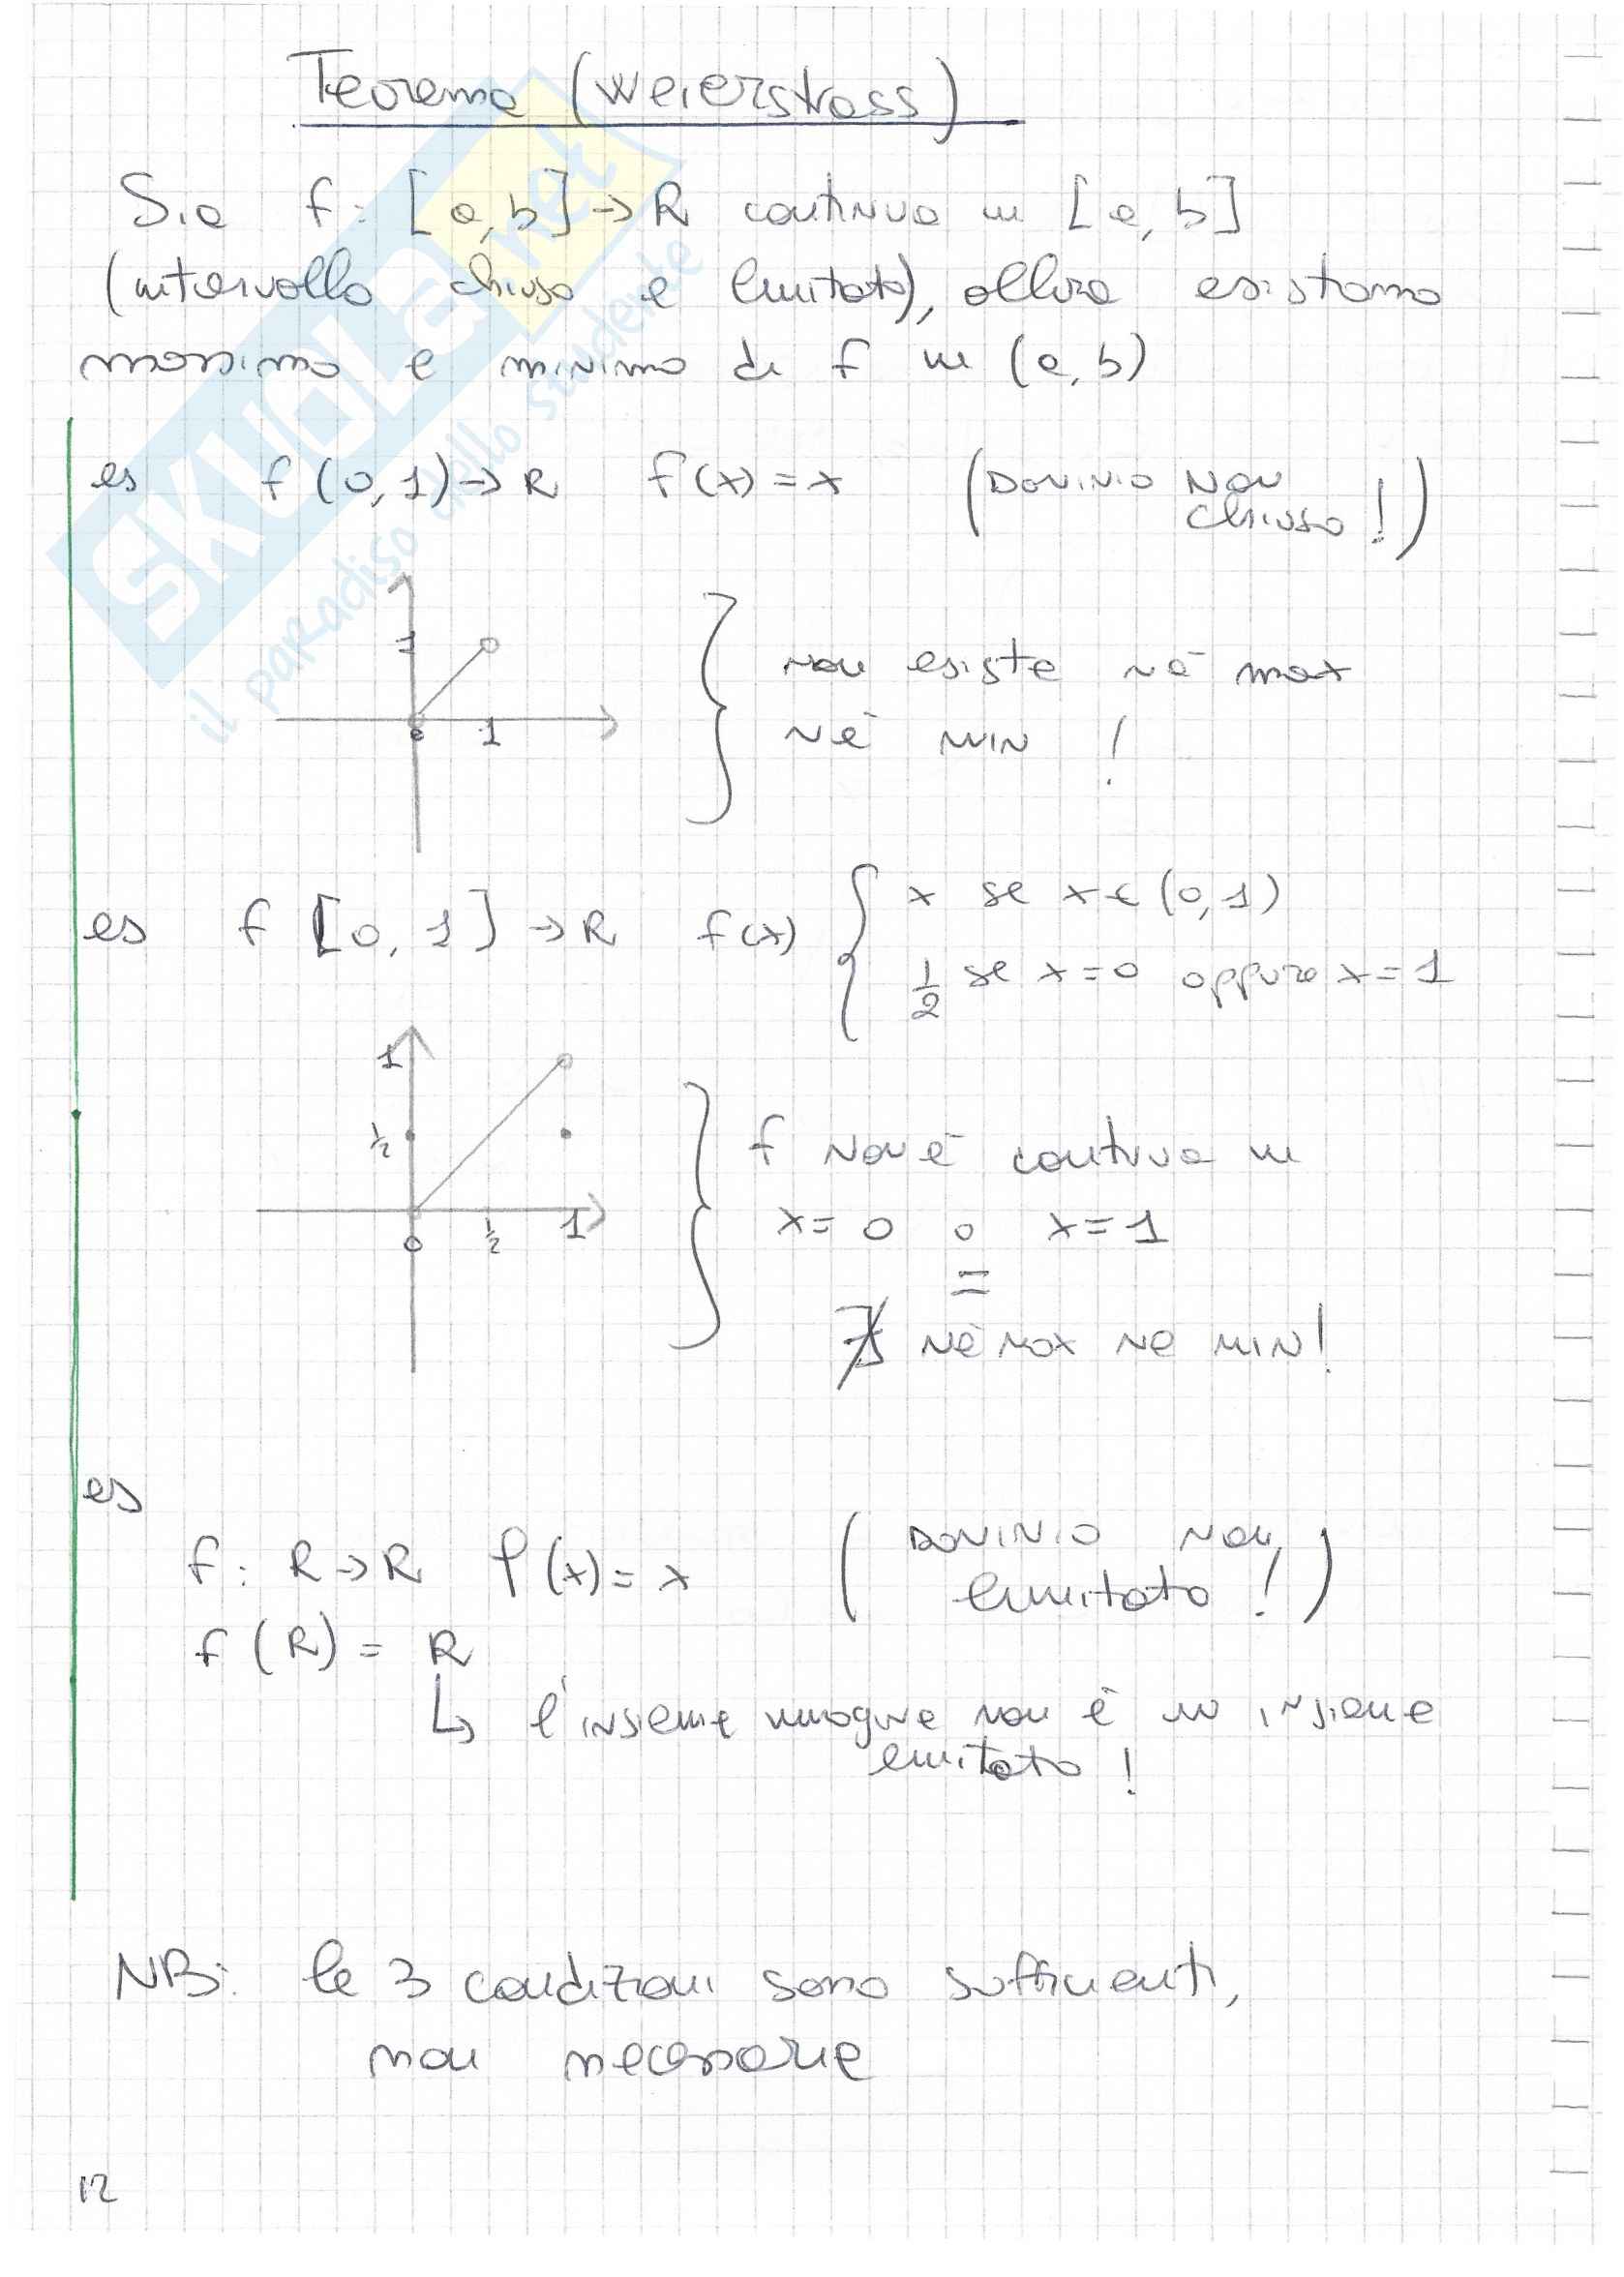 Teorema (Weierstrass)
Sia f: [a, b] → R continua in [a, b]
(intervallo chiuso e limitato), allora esistono
massimo e minimo di f in (a, b)
es f (0, 1) → R f(x) = x (DOMINIO NON
chiuso!)
1
0 1
non esiste nè max
nè MIN !
es f [0, 1] → R f(x) { x se x ∈ (0, 1)
1/2 se x = 0 oppure x = 1
1
1/2
0 1/2 1
f NON è continua in
x = 0 o x = 1
∄ nè MAX nè MIN!
es
f: R → R f(x) = x (DOMINIO NON
limitato!)
f(R) = R
↳ l'insieme immagine non è un insieme
limitato!
NB: le 3 condizioni sono sufficienti,
non necessarie
12
SKUOLA.net
il paradiso dello studente